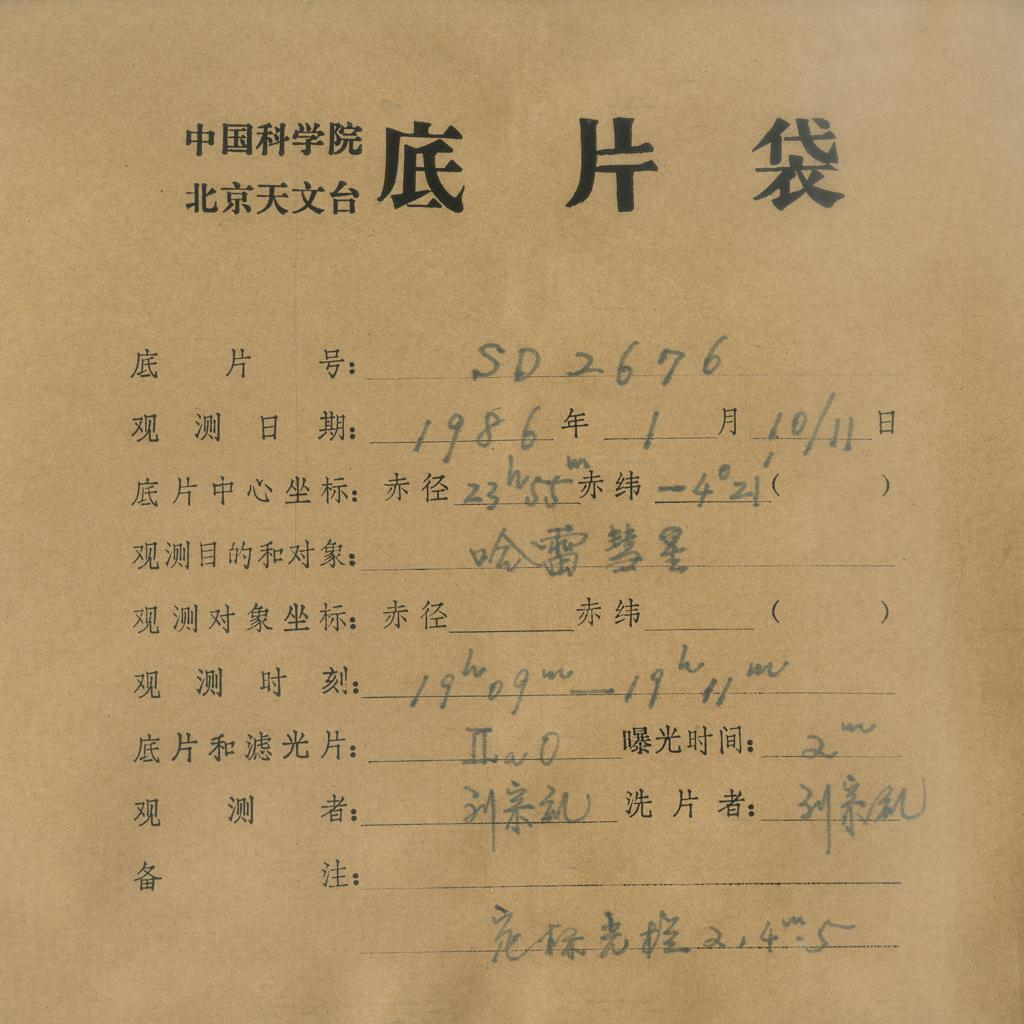 中国科学院
北京天文台
底片袋
底片号: SD2676
观测日期: 1986年1月10/11日
底片中心坐标: 赤径23ʰ55ᵐ赤纬-4°21′( )
观测目的和对象: 哈雷彗星
观测对象坐标: 赤径 赤纬 ( )
观测时刻: 19ʰ09ᵐ—19ʰ11ᵐ
底片和滤光片: IIaO 曝光时间: 2ᵐ
观测者: 刘宗礼 洗片者: 刘宗礼
备注:
定标光楼 2, 4ᵐ.5